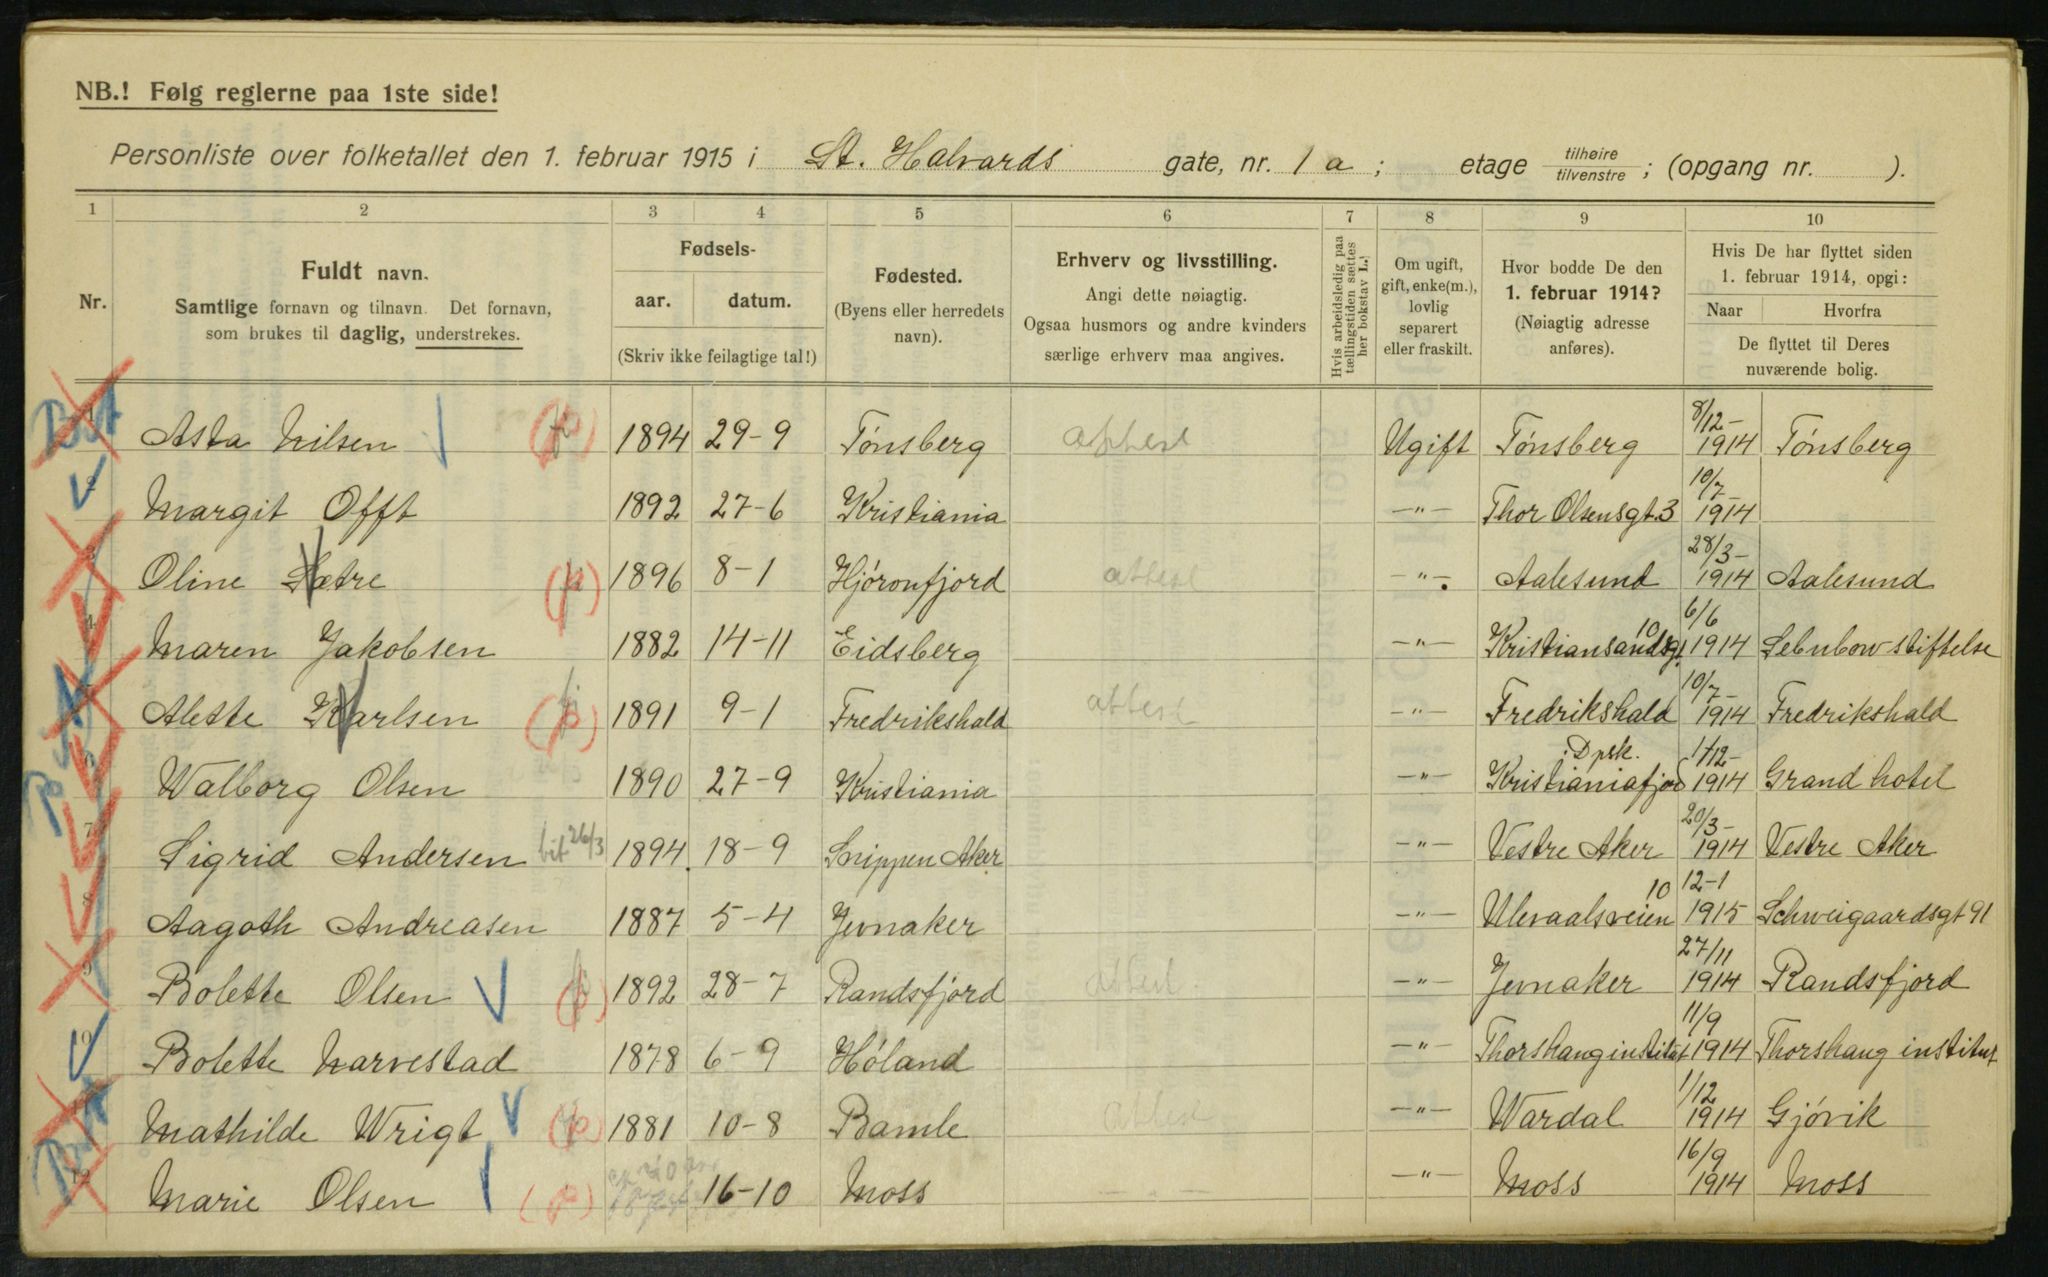 NB.! Følg reglerne paa 1ste side!
Personliste over folketallet den 1. februar 1915 i St. Halvards gate, nr. 1 a ; etage tilhøire / tilvenstre ; (opgang nr. ).
1 2 3 4 5 6 7 8 9 10
Nr.
Fuldt navn.
Samtlige fornavn og tilnavn. Det fornavn,
som brukes til daglig, understrekes.
Fødsels-
aar. datum.
(Skriv ikke feilagtige tal!)
Fødested.
(Byens eller herredets
navn).
Erhverv og livsstilling.
Angi dette nøiagtig.
Ogsaa husmors og andre kvinders
særlige erhverv maa angives.
Hvis arbeidsledig paa
tællingstiden sættes
her bokstav L.
Om ugift,
gift, enke(m.),
lovlig
separert
eller fraskilt.
Hvor bodde De den
1. februar 1914?
(Nøiagtig adresse
anføres).
Hvis De har flyttet siden
1. februar 1914, opgi:
Naar Hvorfra
De flyttet til Deres
nuværende bolig.
1 Asta Nilsen (p) 1894 29-9 Tónsberg attest Ugift Tónsberg 8/12- 1914 Tónsberg
2 Margit Offt 1892 27-6 Kristiania -"- Thor Olsensgt.3 10/7- 1914
3 Oline Sætre (p) 1896 8-1 Hjóronfjord attest -"- Aalesund 28/3- 1914 Aalesund
4 Maren Jakobsen 1882 14-11 Eidsberg -"- Kristiansandsg. 10 6/6 1914 stiftelse
5 Alette Karlsen (p) 1891 9-1 Fredrikshald attest -"- Fredrikshald 10/7- 1914 Fredrikshald
6 Walborg Olsen 1890 27-9 Kristiania -"- Kristianiafjord 1/12- 1914 Grand hotel
7 Sigrid Andersen 26/3 1894. 18-9 Snippen Aker -"- Vestre Aker 20/3- 1914 Vestre Aker
8 Aagoth Andreasen 1887 5-4 Jevnaker -"- Ulevaalsveien 10 12-1 1915 Schweigaardsgt 91
9 Bolette Olsen (p) 1892 28-7 Randsfjord attest -"- Jevnaker 27/11 1914 Randsfjord
10 Bolette Narvestad 1878 6-9 Hóland -"- Thorshauginstitut 11/9 1914 Thorshaug institut
11 Mathilde Wrigt (p) 1881 10-8 Bamle attest -"- Wardal 1/12 1914 Gjóvik
12 Marie Olsen (p) 16-10 Moss -"- Moss 16/9 1914 Moss